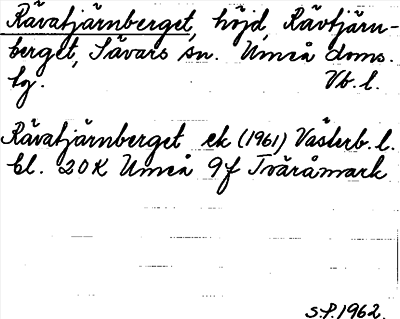 Rävatjärnberget, höjd, Rävtjärn-
berget, Sävars sn. Umeå doms.
lg. Vb. l.
Rävatjärnberget ek (1961) Västerb. l.
bl. 20K Umeå 9f Tväråmark
S.P. 1962.